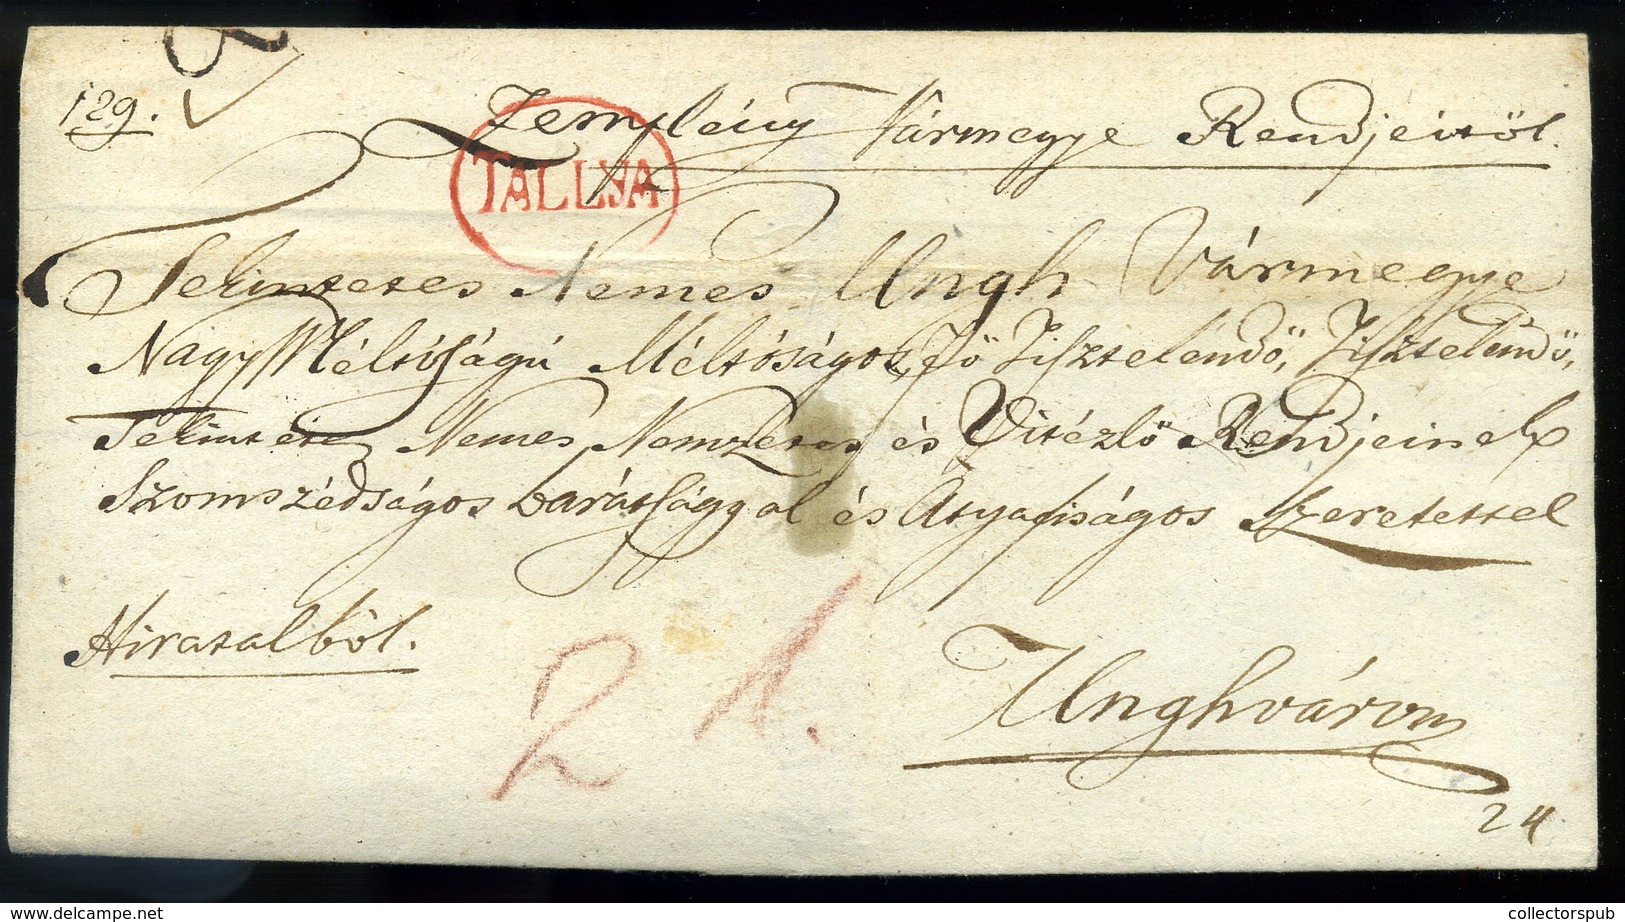 129.
Zemplény Vármegye Rendjeitöl.
TALLYA
Tekintetes Nemes Ungh Vármegye
Nagy Méltóságú Méltóságos, Fő Tisztelendő, Tisztelendő,
Tekintetes Nemes Nemzetes és Vitézlő Rendjeinek
Szomszédságos barátsággal és Atyafiságos Szeretettel
Hivatalból.
2
Unghváron
24
collectorspub